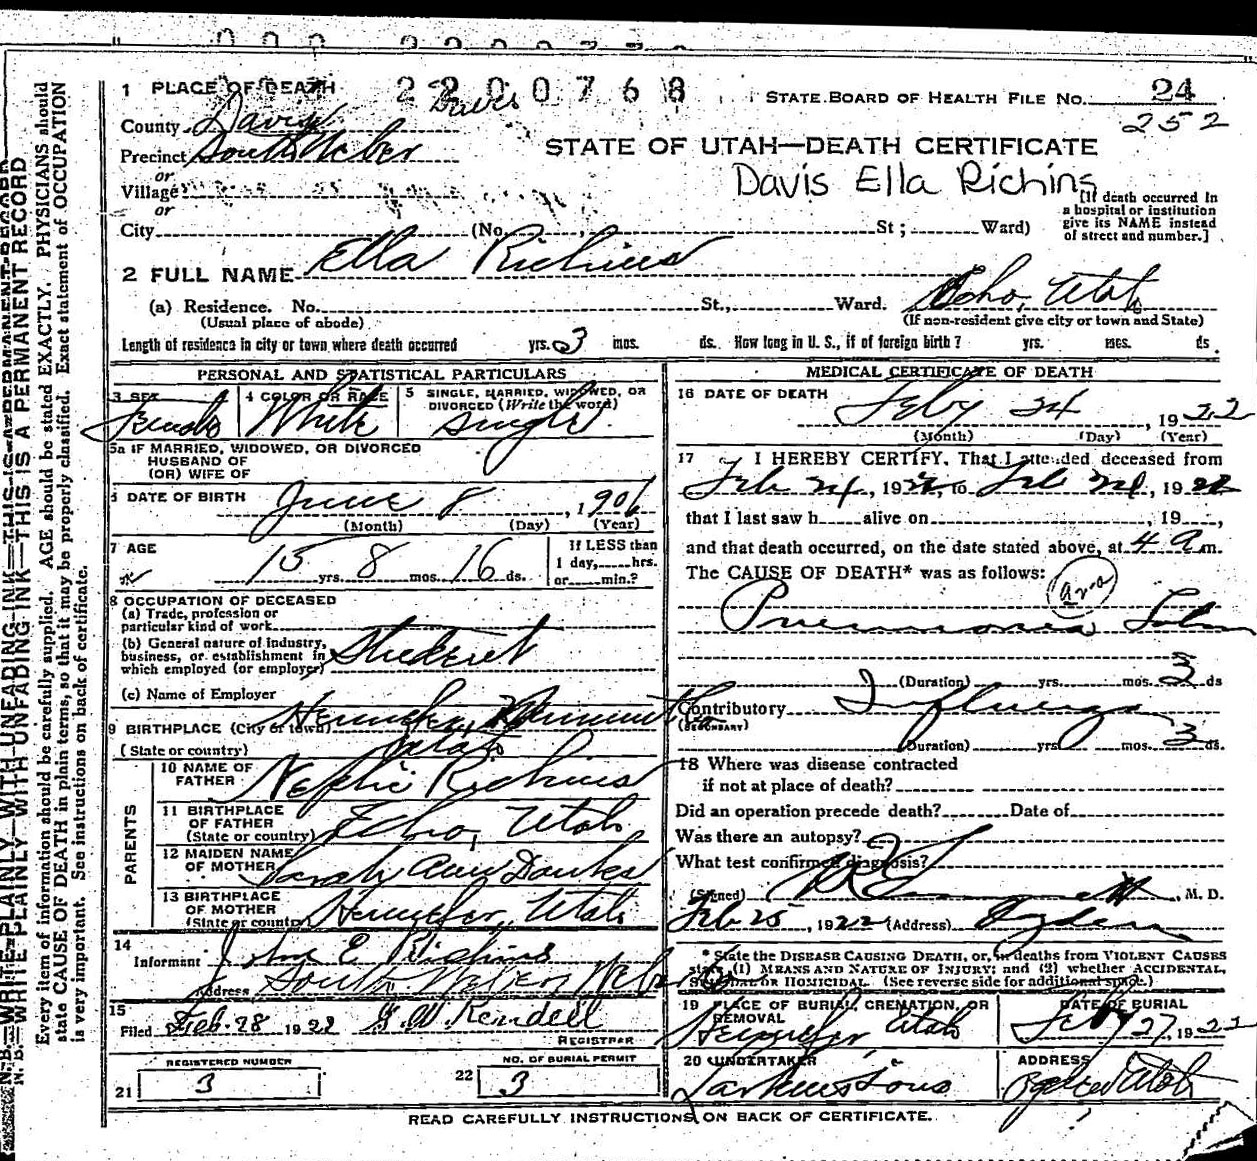 1 PLACE OF DEATH 2200768 STATE BOARD OF HEALTH FILE No. 24
County Davis Davis 252
Precinct South Weber STATE OF UTAH—DEATH CERTIFICATE
or
Village Davis Ella Richins
or
City (No. St; Ward) [If death occurred in a hospital or institution give its NAME instead of street and number.]
2 FULL NAME Ella Richins
(a) Residence. No. St., Ward. Echo, Utah
(Usual place of abode) (If non-resident give city or town and State)
Length of residence in city or town where death occurred yrs. 3 mos. ds. How long in U. S., if of foreign birth? yrs. mos. ds.
PERSONAL AND STATISTICAL PARTICULARS
3 SEX 4 COLOR OR RACE 5 SINGLE, MARRIED, WIDOWED, OR DIVORCED (Write the word)
Female White Single
5a IF MARRIED, WIDOWED, OR DIVORCED
HUSBAND OF
(OR) WIFE OF
6 DATE OF BIRTH June 8, 1906
(Month) (Day) (Year)
7 AGE 15 yrs. 8 mos. 16 ds.
If LESS than
1 day, hrs.
or min.?
8 OCCUPATION OF DECEASED
(a) Trade, profession or
particular kind of work
(b) General nature of industry,
business, or establishment in
which employed (or employer) Student
(c) Name of Employer
9 BIRTHPLACE (City or town) Henefer,
(State or country) Utah
PARENTS
10 NAME OF FATHER Nephi Richins
11 BIRTHPLACE OF FATHER
(State or country) Echo, Utah
12 MAIDEN NAME OF MOTHER Sarah Ann Dawks
13 BIRTHPLACE OF MOTHER
(State or country) Henefer, Utah
14 Informant E Richins
Address South Weber
15 Filed Feb. 28 1922 G. W. Kendell
REGISTRAR
REGISTERED NUMBER NO. OF BURIAL PERMIT
21 3 22 3
MEDICAL CERTIFICATE OF DEATH
16 DATE OF DEATH Feby 24, 1922
(Month) (Day) (Year)
17 I HEREBY CERTIFY, That I attended deceased from
Feb 24, 1922, to Feb 24, 1922
that I last saw h alive on , 19 ,
and that death occurred, on the date stated above, at 4 a m.
The CAUSE OF DEATH* was as follows:
Pneumonia
(Duration) yrs. mos. 3 ds
Contributory Influenza
(SECONDARY)
(Duration) yrs mos. 3 ds.
18 Where was disease contracted
if not at place of death?
Did an operation precede death? Date of
Was there an autopsy?
What test confirmed diagnosis?
(Signed) M. D.
Feb 25, 1922 (Address) Ogden
* State the DISEASE CAUSING DEATH, or, in deaths from VIOLENT CAUSES
state (1) MEANS AND NATURE OF INJURY; and (2) whether ACCIDENTAL,
SUICIDAL OR HOMICIDAL. (See reverse side for additional space.)
19 PLACE OF BURIAL, CREMATION, OR REMOVAL DATE OF BURIAL
Henefer Utah Feby 27, 1922
20 UNDERTAKER ADDRESS
Larkin & Sons Ogden Utah
READ CAREFULLY INSTRUCTIONS ON BACK OF CERTIFICATE.
N. B.—WRITE PLAINLY WITH UNFADING INK—THIS IS A PERMANENT RECORD
N. B.—WRITE PLAINLY WITH UNFADING INK—THIS IS A PERMANENT RECORD
Every item of information should be carefully supplied. AGE should be stated EXACTLY. PHYSICIANS should
state CAUSE OF DEATH in plain terms, so that it may be properly classified. Exact statement of OCCUPATION
is very important. See instructions on back of certificate.